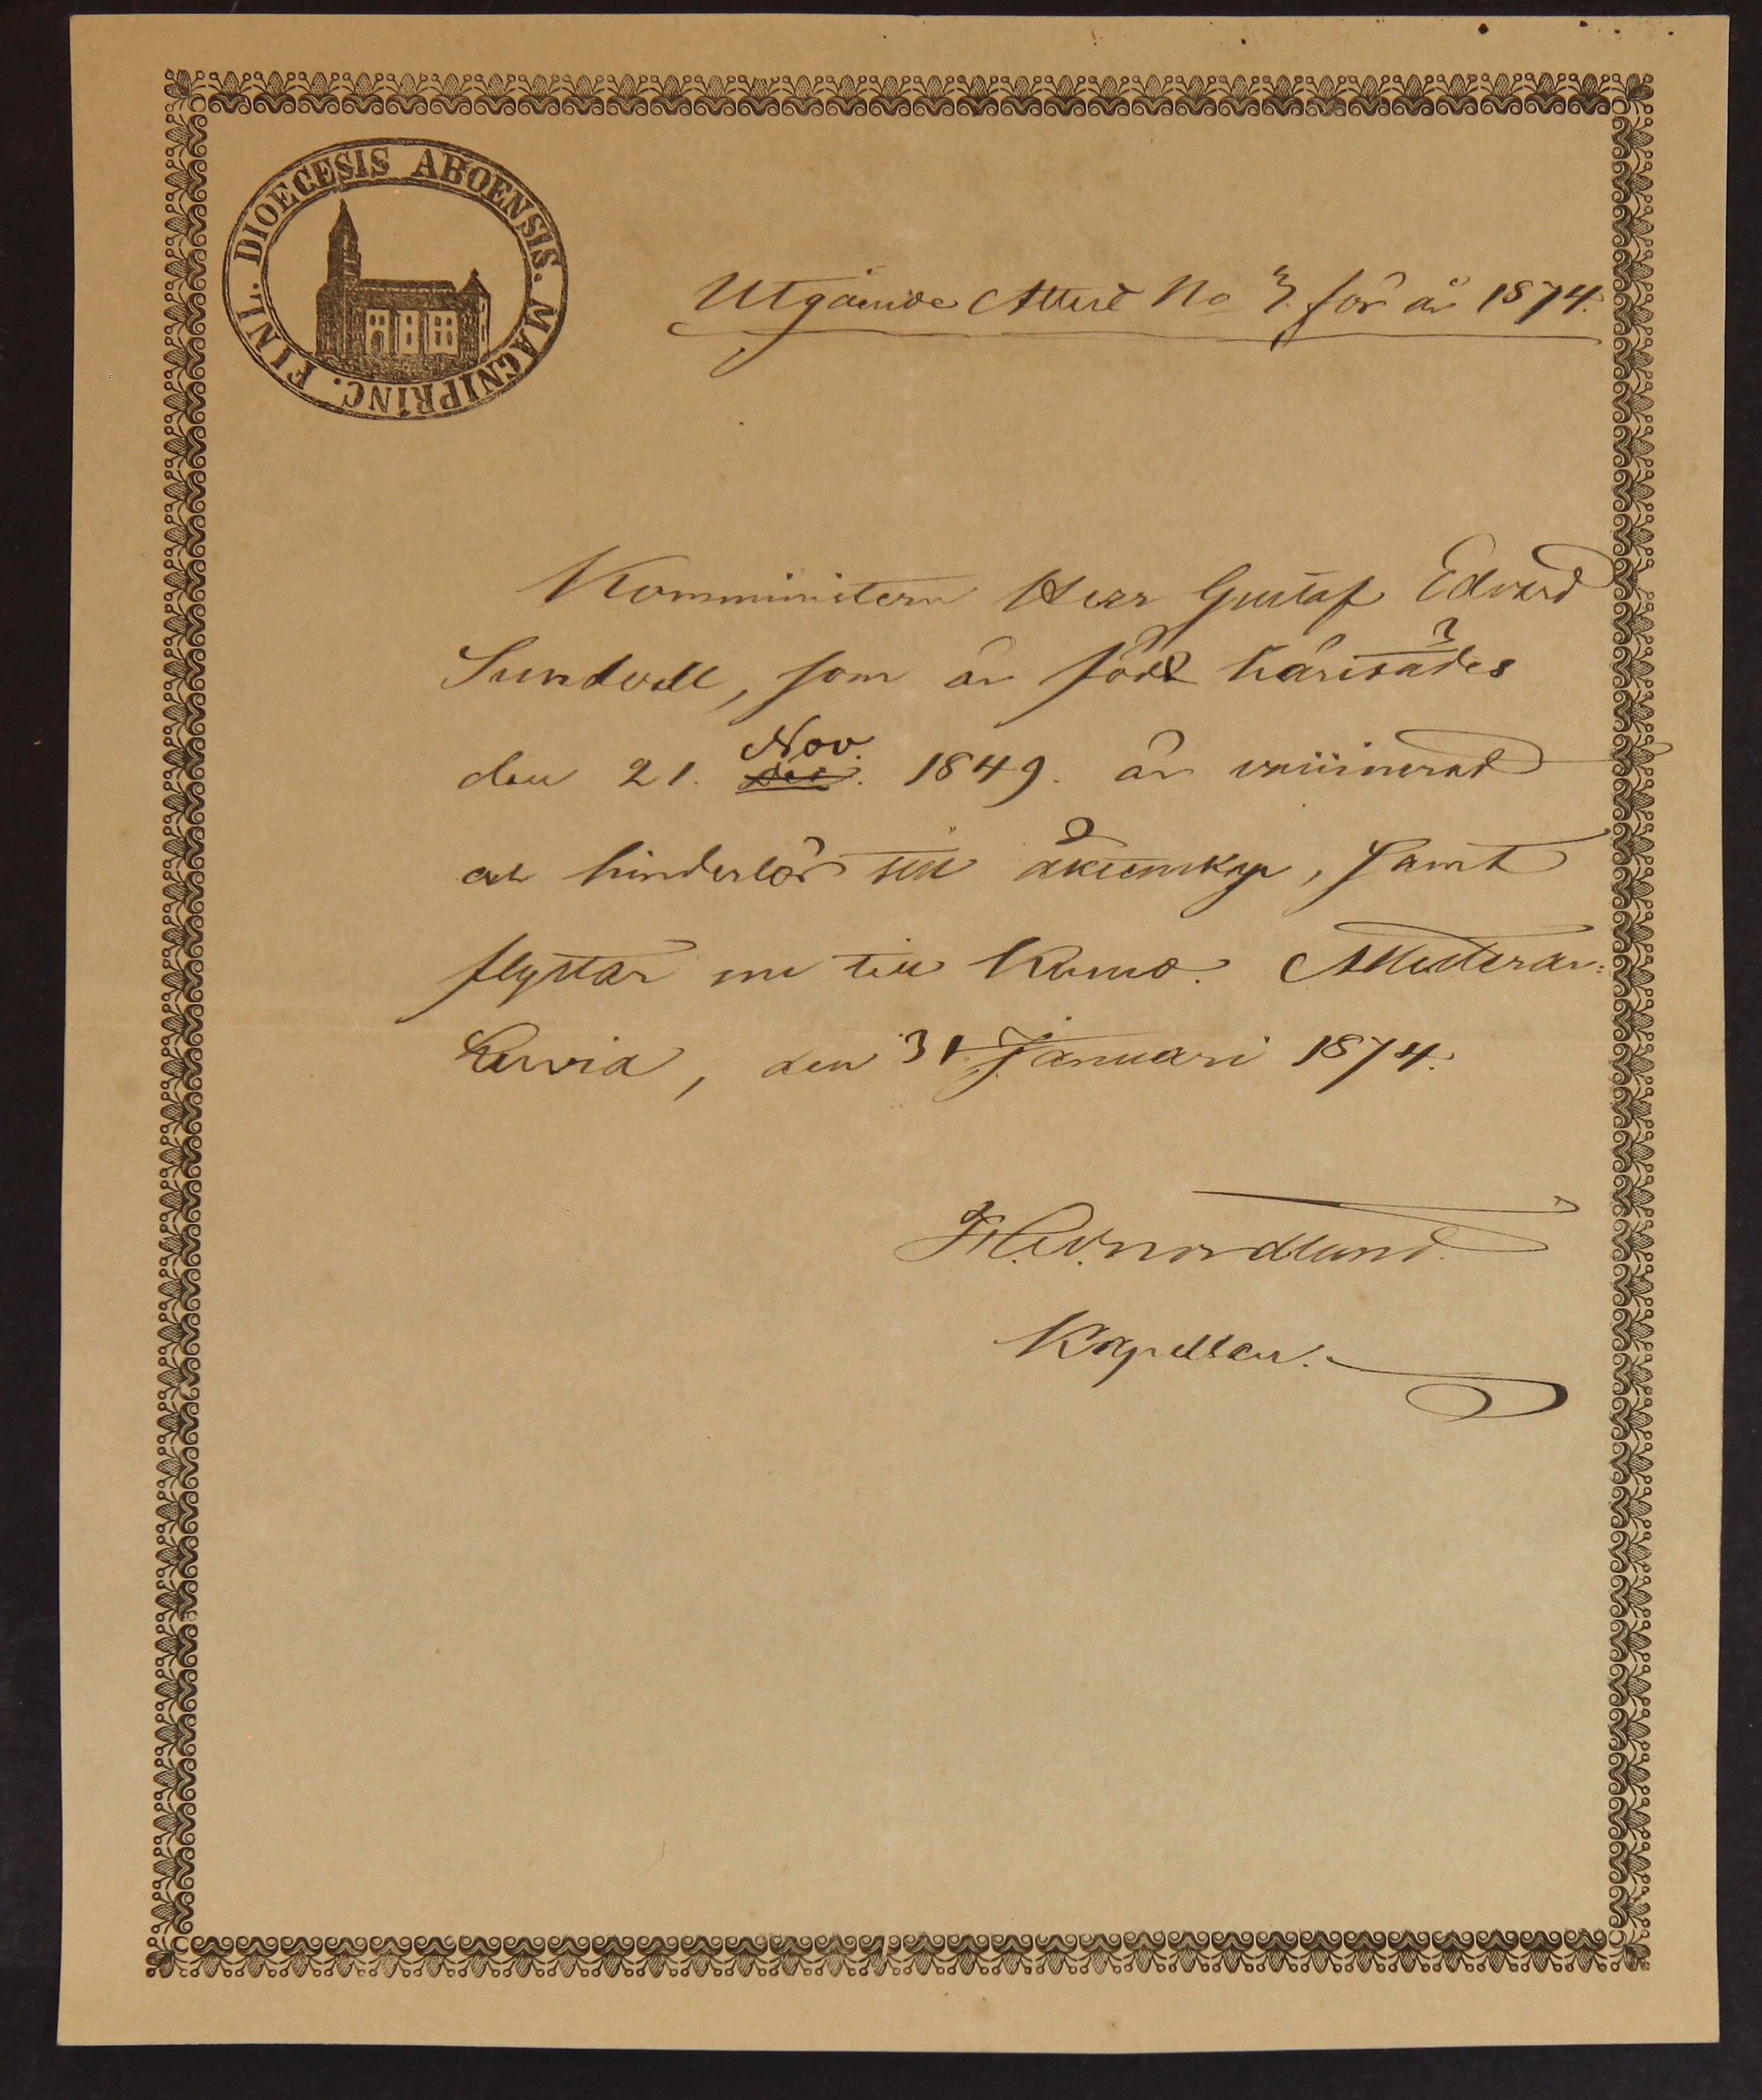 DIOECESIS ABOENSIS. MAGNIPRINC. FINL.
Utgående Attest No 3. för år 1874.
Komministern Herr Gustaf Edvard
Sundvall, som är född härstädes
den 21. Nov. 1849. är vaccinerad
och hinderlös till äktenskap, samt
flyttar nu till Kumo. Attesterar:
Luvia, den 31 Januari 1874.
Nordlund.
Kapellan.